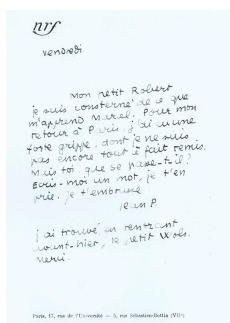 nrf
vendredi
Mon petit Robert
je suis consterné de ce que
m'apprend Marcel. Pour mon
retour à Paris, j'ai eu une
forte grippe, dont je ne suis
pas encore tout à fait remis.
Mais toi, que se passe-t-il?
Ecris-moi un mot, je t'en
prie. je t'embrasse
Jean P.
j'ai trouvé, en rentrant
avant-hier, le petit Wols.
Merci.
Paris, 17, rue de l'Université — 5, rue Sébastien-Bottin (VIIe)